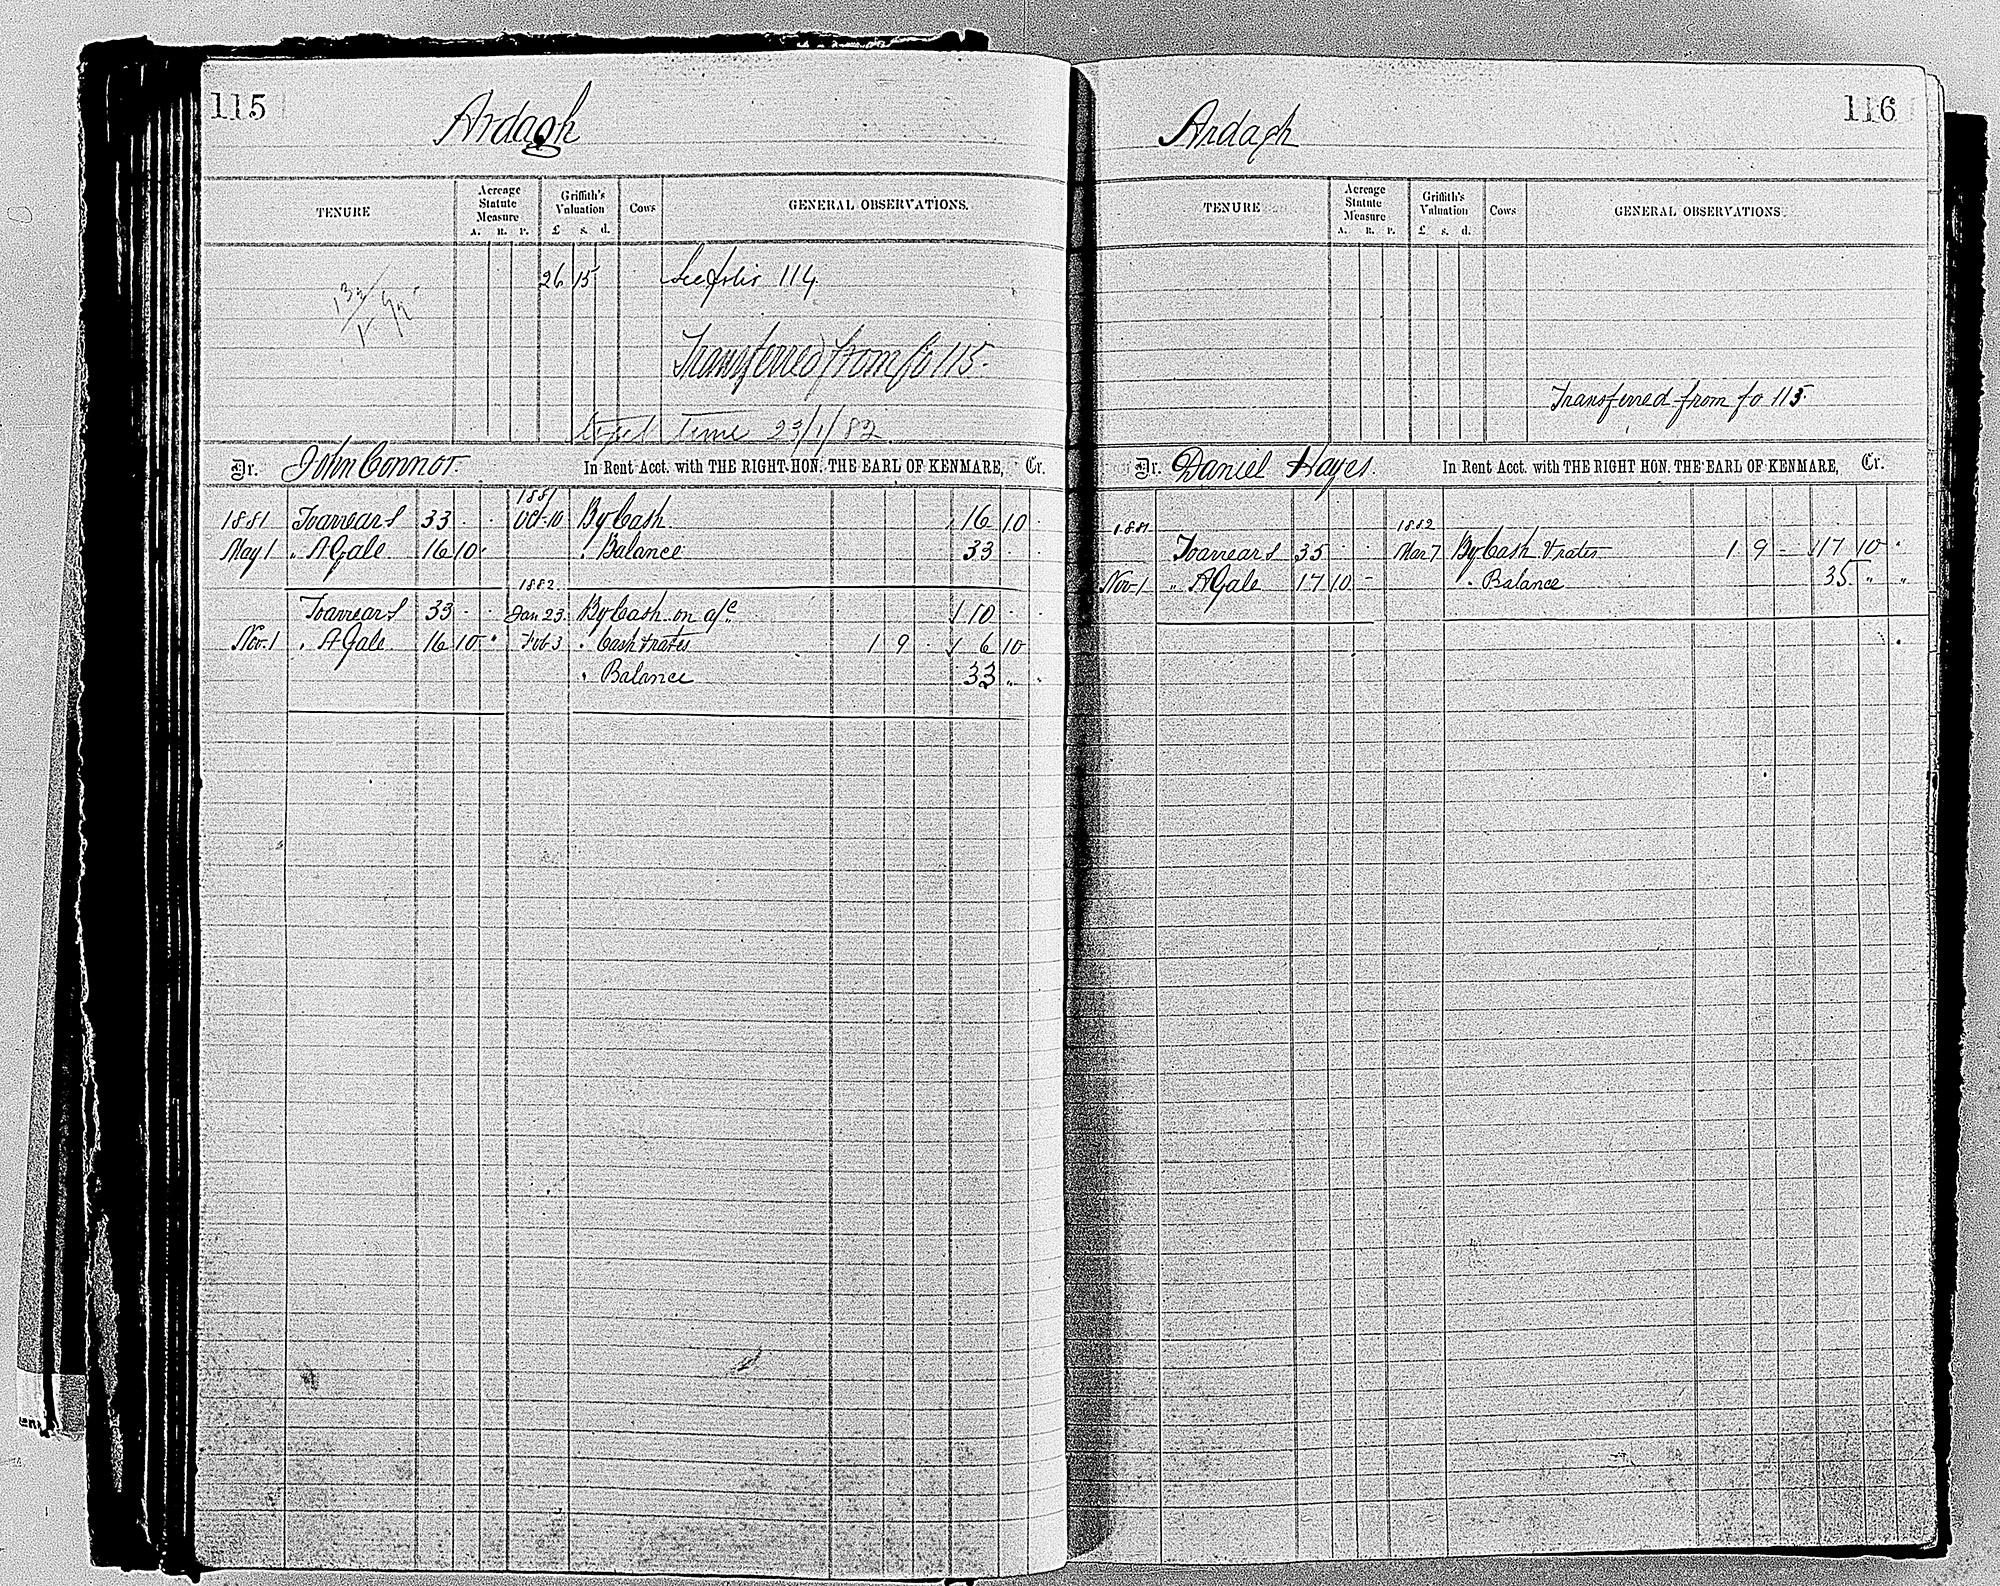 115
Ardagh
TENURE Acreage Statute Measure A. R. P. Griffith's Valuation £ s. d. Cows GENERAL OBSERVATIONS.
26 15 See folio 114
Transferred from fo 115
time 23/1/82
Dr. John Connor. In Rent Acct. with THE RIGHT HON. THE EARL OF KENMARE, Cr.
1881
1881 To arrears 33 . . Oct 10 By Cash 16 10 .
May 1 " A Gale 16 10 . " Balance 33 . .
1882
To arrears 33 . . Jan 23 By Cash on a/c 10 . .
Nov. 1 " A Gale 16 10 " Feb 3 " Cash & rates 1 9 . 6 10
" Balance 33 " .
116
Ardagh
TENURE Acreage Statute Measure A. R. P. Griffith's Valuation £ s. d. Cows GENERAL OBSERVATIONS.
Transferred from fo 115
Dr. Daniel Hayes. In Rent Acct. with THE RIGHT HON. THE EARL OF KENMARE, Cr.
1881 1882
To arrears 35 . . Mar 7 By Cash & rates 1 9 - 17 10 "
Nov-1 " A Gale 17 10 - " Balance 35 " "